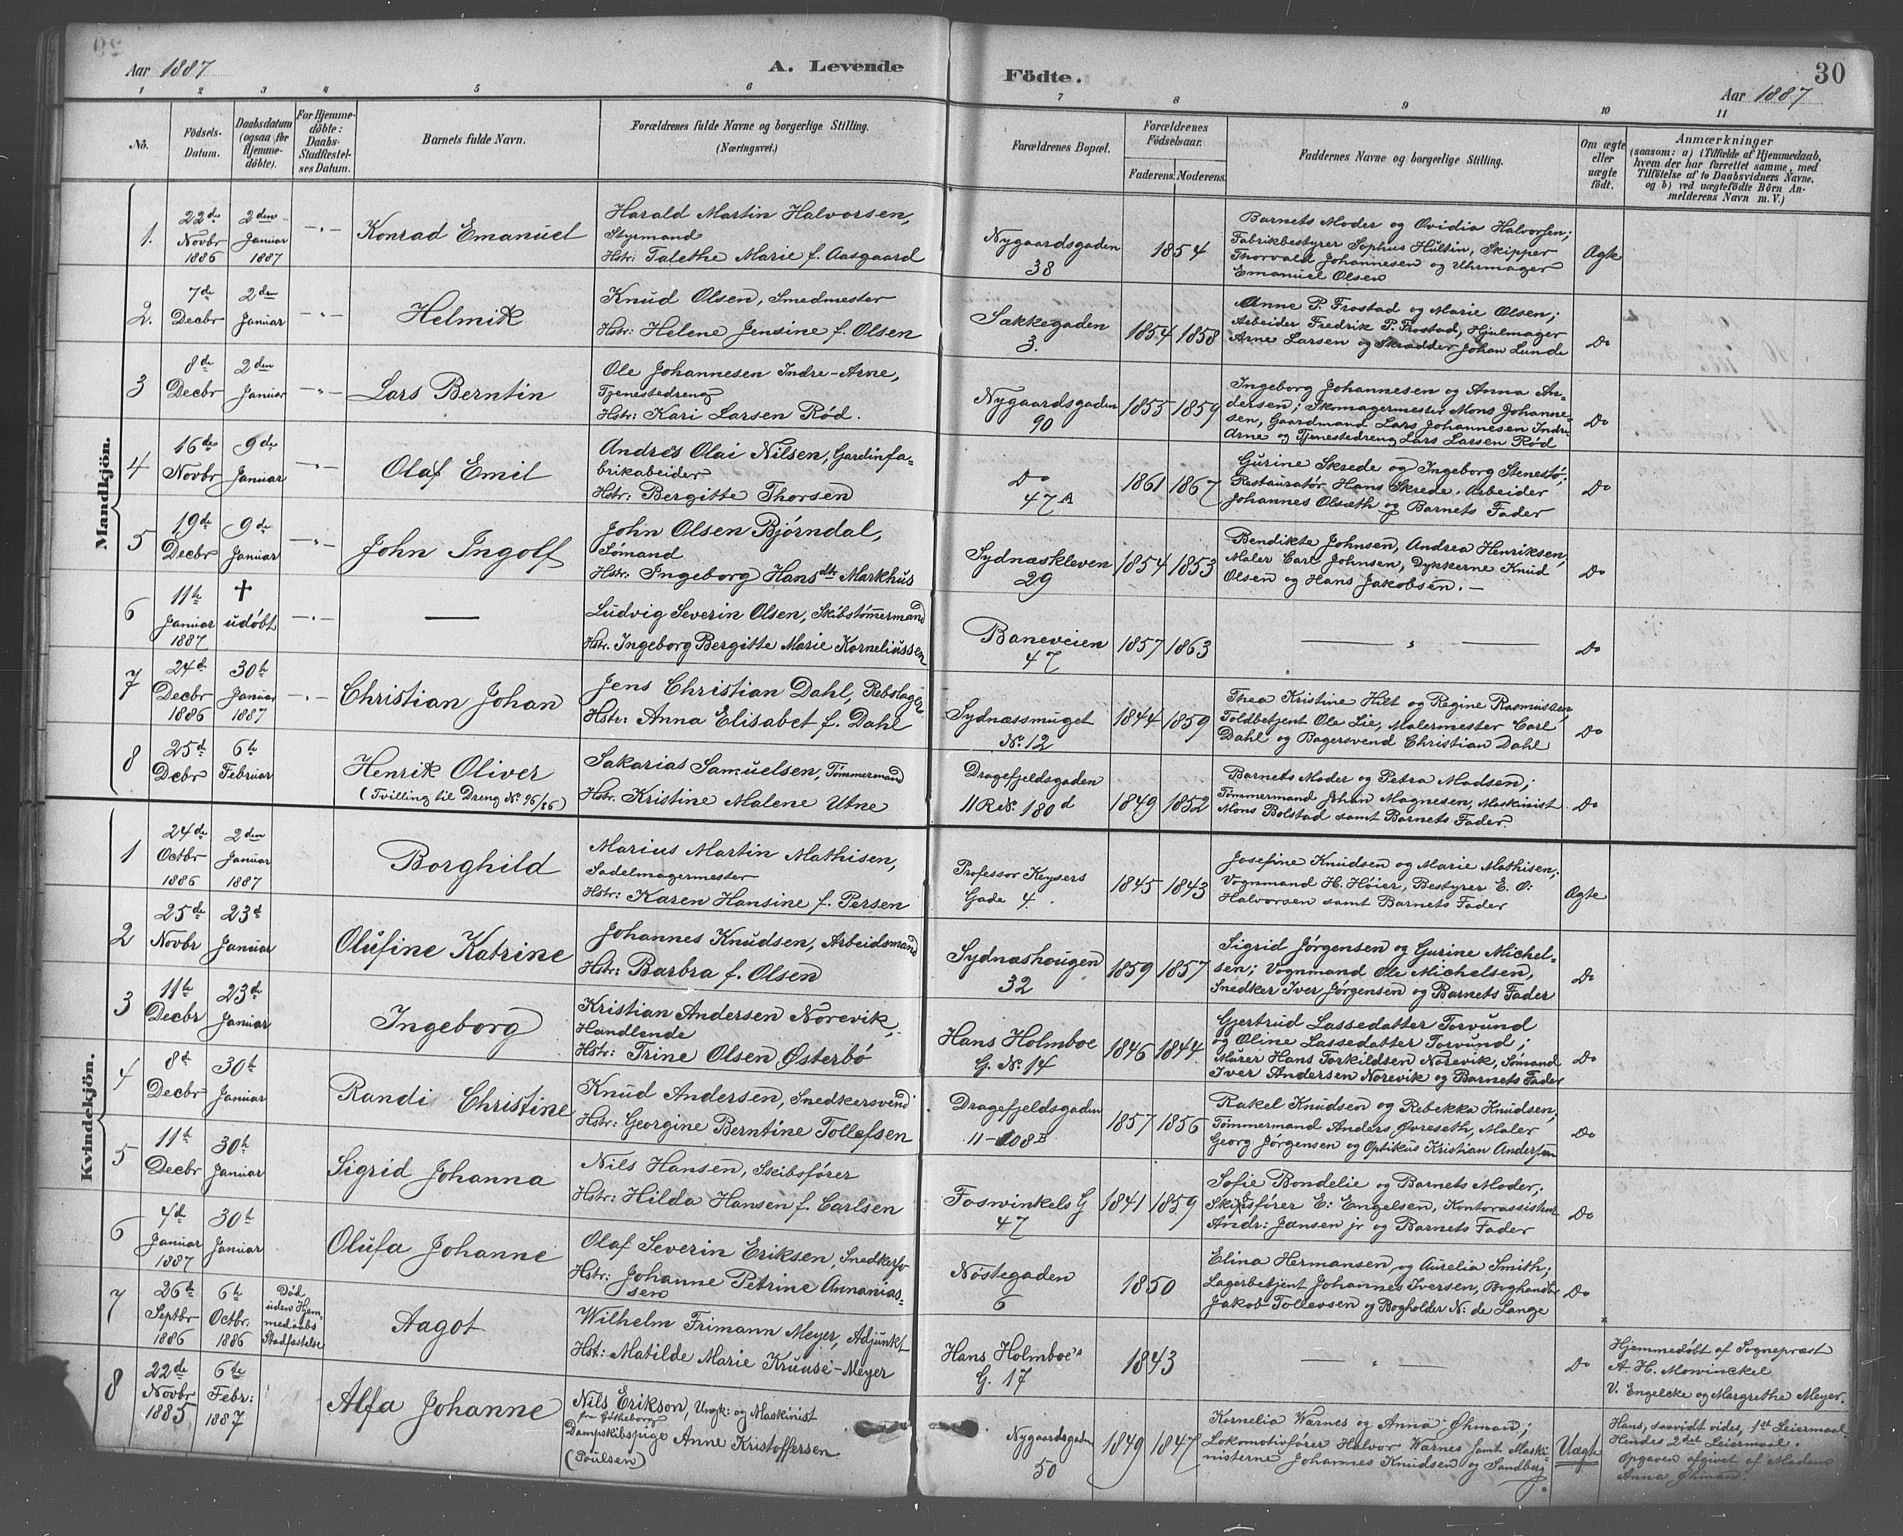 Aar 1887
A. Levende
Födte.
30
Aar 1887
1 2 3 4 5 6 7 8 9 10 11
No.
Födsels-
Datum.
Daabsdatum
(ogsaa for
Hjemme-
döbte).
For Hjemme-
döbte:
Daabs-
Stadfæstel-
ses Datum.
Barnets fulde Navn.
Forældrenes fulde Navne og borgerlige Stilling.
(Næringsvei.)
Forældrenes Bopæl.
Forældrenes
Födselsaar.
Faderens. Moderens.
Faddernes Navne og borgerlige Stilling.
Om ægte
eller
uægte
födt.
Anmærkninger
(saasom: a) i Tilfælde af Hjemmedaab,
hvem der har forrettet samme, med
Tilföielse af to Daabsvidners Navne,
og b) ved uægtefödte Börn An-
melderens Navn m. V.)
Mandkjön.
1. 22de Novbr 1886
2den Januar 1887
Konrad Emanuel
Harald Martin Halvorsen,
Styrmand
Hstr: Talethe Marie f. Aasgaard
Nygaardsgaden
38
1854
Barnets Moder og Ovidia Halvorsen;
Fabrikbestyrer Sophus Hultin, Skipper
Thorvald Johannesen og Uhrmager
Emanuel Olsen
Ægte
2. 7de Decbr
2den Januar
Helmik
Knud Olsen, Smedmester
Hstr: Helene Jensine f. Olsen
Sækkegaden
3.
1854 1858
Anne P. Frostad og Marie Olsen;
Arbeider Fredrik P. Frostad, Hjulmager
Arne Larsen og Skrædder Johan Lunde
Do
3 8de Decbr
2den Januar
Lars Berntin
Ole Johannesen Indre-Arne,
Tjenestedreng
Hstr: Kari Larsen Rød.
Nygaardsgaden
90
1855 1859
Ingeborg Johannesen og Anna An-
dersen; Skomagermester Mons Johanne-
sen, Gaardmand Lars Johannesen Indre
Arne og Tjenestedreng Lars Larsen Rød
Do
4 16de Novbr
9de Januar
Olaf Emil
Andres Olai Nilsen, Gardinfa-
brikabeider
Hstr: Bergitte Thorsen
Do
47 A
1861 1867
Gurine Skrede og Ingeborg Stenestø;
Restauratør Hans Skrede, Arbeider
Johannes Olsæth og Barnets Fader
Do
5 19de Decbr
9de Januar
John Ingolf
John Olsen Bjørndal,
Sømand
Hstr: Ingeborg Hansdtr Markhus
Sydnæskleven
29
1854 1853
Bendikte Johnsen, Andrea Henriksen,
Maler Carl Johnsen, Dykkerne Knud
Olsen og Hans Jakobsen. —
Do
6 11te Januar 1887
† udøbt
—
Ludvig Severin Olsen, Skibstømmermand
Hstr. Ingeborg Bergitte Marie Korneliussen
Baneveien
47
1857 1863
— " —
Do
7 24de Decbr 1886
30te Januar 1887
Christian Johan
Jens Christian Dahl, Rebslager
Hstr: Anna Elisabet f. Dahl
Sydnæssmuget
No. 12
1844 1859
Thea Kristine Hilt og Regine Rasmussen,
Toldbetjent Ole Lie, Malermester Carl
Dahl og Bagersvend Christian Dahl
Do
8 25de Decbr
6te Februar
Henrik Oliver
(Tvilling til Dreng No. 96/86)
Sakarias Samuelsen, Tømmermand
Hstr. Kristine Malene Utne
Dragefjeldsgaden
11 R No. 180 d
1849 1852
Barnets Moder og Petra Madsen;
Tømmermand Johan Magnesen, Maskinist
Mons Bolstad samt Barnets Fader.
Do
Kvindekjön.
1 24de Octbr 1886
2den Januar 1887
Borghild
Marius Martin Mathisen,
Sadelmagermester
Hstr: Karen Hansine f. Persen
Professor Keysers
Gade 4.
1845 1843
Josefine Knudsen og Marie Mathisen;
Vognmand H. Høier, Bestyrer E. O:
Halvorsen samt Barnets Fader
Ægte
2 25de Novbr
23d Januar
Olufine Katrine
Johannes Knudsen, Arbeidsmand
Hstr: Barbra f. Olsen
Sydnæshougen
32
1859 1857
Sigrid Jørgensen og Gurine Michel-
sen; Vognmand Ole Michelsen,
Snedker Iver Jørgensen og Barnets Fader
Do
3 11te Decbr
23de Januar
Ingeborg
Kristian Andersen Norevik,
Handlende
Hstr: Trine Olsen Østerbø
Hans Holmboe
G. No. 14
1846 1844
Gjertrud Lassedatter Torvund
og Oline Lassedatter Torvund;
Murer Hans Torkildsen Norevik, Sømand
Iver Andersen Norevik og Barnets Fader
Do
4 8de Decbr
30te Januar
Randi Christine
Knud Andersen, Snedkersvend
Hstr: Georgine Berntine Tollefsen
Dragefjeldsgaden
11–108 B
1857 1856
Rakel Knudsen og Rebekka Knudsen,
Tømmermand Anders Øvreseth, Maler
Georg Jørgensen og Optikus Kristian Andersen
Do
5 11te Decbr
30te Januar
Sigrid Johanna
Nils Hansen, Skibsfører
Hstr: Hilda Hansen f. Carlsen
Foswinkels G
47
1841 1859
Sofie Bondelie og Barnets Moder;
Skibsfører E: Engelsen, Kontorassistent
Andr: Jansen jr og Barnets Fader
Do
6 4de Januar 1887
30te Januar
Olufa Johanne
Olaf Severin Eriksen, Snedkersv
Hstr: Johanne Petrine Annanias-
sen
Nøstegaden
6
1850
Elina Hermansen og Aurelia Smith;
Lagerbetjent Johannes Iversen, Boghandler
Jakob Tollevsen og Bogholder N: de Lange
Do
7 26te Septbr 1886
6te Octbr. 1886
Død
uden Hjem-
medaabs
Stadfæstelse
Aagot
Wilhelm Frimann Meyer, Adjunkt
Hst: Matilde Marie Kruuse-Meyer
Hans Holmboe's
G. 17
1843
— " —
Do
Hjemmedøbt af Sognepræst
A. H. Mowinckel
V. Engelcke og Margrethe Meyer.
8 22de Novbr 1885
6te Febr: 1887
Alfa Johanne
Nils Erikson, Ungk: og Maskinist
fra Gøtheborg
Dampskibspige Anne Kristoffersen
(Poulsen)
Nygaardsgaden
50
1849 1847
Kornelia Wærnes og Anna Øhman;
Lokomotivfører Halvor Wærnes samt Maski-
nisterne Johannes Knudsen og Sandberg.
Uægte
Hans, saavidt vides, 1ste Leiermaal.
Hendes 2det Leiermaal.
Opgaven afgivet af Madam
Anna Øhman.